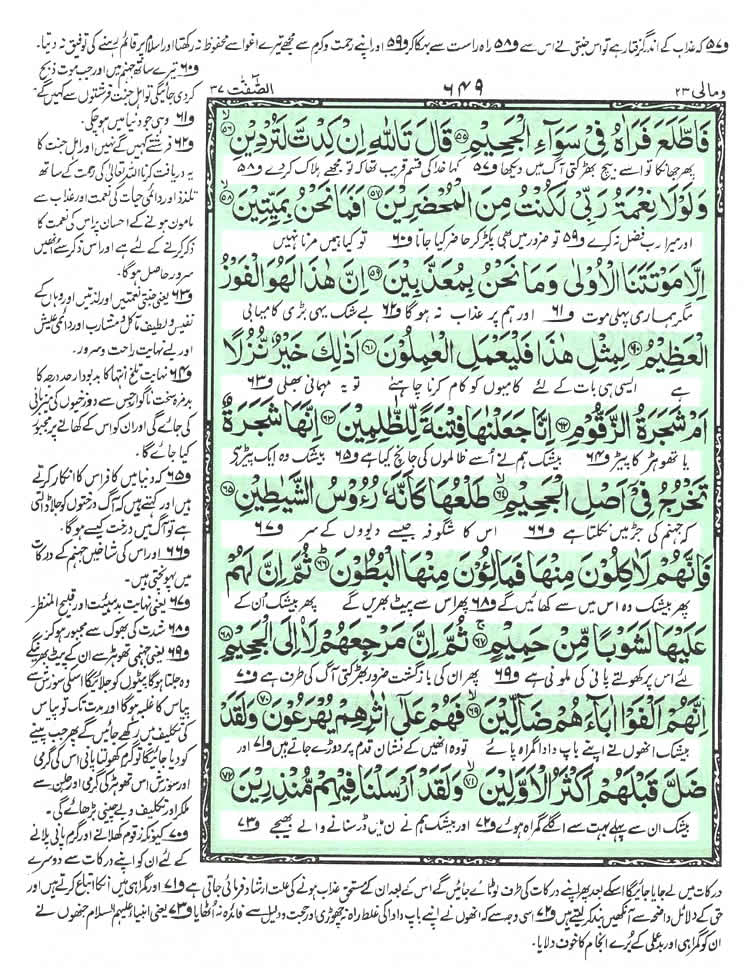 ف۵۷ کہ عذاب کے اندر گرفتار ہے تو اس جنتی نے اس سے ف۵۸ راہ راست سے بہکا کر ف۵۹ اور اپنے رحمت و کرم سے مجھے تیرے اغوا سے محفوظ نہ رکھتا اور اسلام پر قائم رہنے کی توفیق نہ دیتا۔
ومالی ۲۳
۶۴۹
الصّٰفّٰت ۳۷
فَاطَّلَعَ فَرَاٰهُ فِیْ سَوَآءِ الْجَحِیْمِ ۵۵ قَالَ تَاللّٰهِ اِنْ كِدْتَّ لَتُرْدِیْنِ ۵۶
پھر جھانکا تو اسے بیچ بھڑکتی آگ میں دیکھا ف۵۷ کہا خدا کی قسم قریب تھا کہ تو مجھے ہلاک کر دے ف۵۸
وَلَوْلَا نِعْمَةُ رَبِّیْ لَكُنْتُ مِنَ الْمُحْضَرِیْنَ ۵۷ اَفَمَا نَحْنُ بِمَیِّتِیْنَ ۵۸
اور میرا رب فضل نہ کرے ف۵۹ تو ضرور میں بھی پکڑ کر حاضر کیا جاتا ف۶۰ تو کیا ہمیں مرنا نہیں
اِلَّا مَوْتَتَنَا الْاُوْلٰی وَمَا نَحْنُ بِمُعَذَّبِیْنَ ۵۹ اِنَّ هٰذَا لَهُوَ الْفَوْزُ
مگر ہماری پہلی موت ف۶۱ اور ہم پر عذاب نہ ہوگا ف۶۲ بے شک یہی بڑی کامیابی
الْعَظِیْمُ ۶۰ لِمِثْلِ هٰذَا فَلْیَعْمَلِ الْعٰمِلُوْنَ ۶۱ اَذٰلِكَ خَیْرٌ نُّزُلًا
ہے ایسی ہی بات کے لئے کامیوں کو کام کرنا چاہئے تو یہ مہمانی بھلی ف۶۳
اَمْ شَجَرَةُ الزَّقُّوْمِ ۶۲ اِنَّا جَعَلْنٰهَا فِتْنَةً لِّلظّٰلِمِیْنَ ۶۳ اِنَّهَا شَجَرَةٌ
یا تھوہڑ کا پیڑ ف۶۴ بیشک ہم نے اُسے ظالموں کی جانچ کیا ہے ف۶۵ بیشک وہ ایک پیڑ ہے
تَخْرُجُ فِیْ اَصْلِ الْجَحِیْمِ ۶۴ طَلْعُهَا كَاَنَّهٗ رُءُوْسُ الشَّیٰطِیْنِ ۶۵
کہ جہنم کی جڑ میں نکلتا ہے ف۶۶ اس کا شگوفہ جیسے دیووں کے سر ف۶۷
فَاِنَّهُمْ لَاٰكِلُوْنَ مِنْهَا فَمَالِـُٔوْنَ مِنْهَا الْبُطُوْنَ ۶۶ ثُمَّ اِنَّ لَهُمْ
پھر بیشک وہ اس میں سے کھائیں گے ف۶۸ پھر اس سے پیٹ بھریں گے پھر بیشک اُن کے
عَلَیْهَا لَشَوْبًا مِّنْ حَمِیْمٍ ۶۷ ثُمَّ اِنَّ مَرْجِعَهُمْ لَا۠اِلَی الْجَحِیْمِ ۶۸
لئے اس پر کھولتے پانی کی ملونی ہے ف۶۹ پھر ان کی بازگشت ضرور بھڑکتی آگ کی طرف ہے ف۷۰
اِنَّهُمْ اَلْفَوْا اٰبَآءَهُمْ ضَآلِّیْنَ ۶۹ فَهُمْ عَلٰۤی اٰثٰرِهِمْ یُهْرَعُوْنَ ۷۰ وَلَقَدْ
بیشک انھوں نے اپنے باپ دادا گمراہ پائے تو وہ انھیں کے نشان قدم پر دوڑے جاتے ہیں ف۷۱ اور
ضَلَّ قَبْلَهُمْ اَكْثَرُ الْاَوَّلِیْنَ ۷۱ وَلَقَدْ اَرْسَلْنَا فِیْهِمْ مُّنْذِرِیْنَ ۷۲
بیشک ان سے پہلے بہت سے اگلے گمراہ ہوئے ف۷۲ اور بیشک ہم نے ان میں ڈر سنانے والے بھیجے ف۷۳
ف۶۰ تیرے ساتھ جہنم میں اور جب موت ذبح
کر دی جائیگی تو اہل جنت فرشتوں سے کہیں گے
ف۶۱ وہی جو دنیا میں ہو چکی۔
ف۶۲ فرشتے کہیں گے نہیں اور اہل جنت کا
یہ دریافت کرنا اللہ تعالیٰ کی رحمت کے ساتھ
تلذذ اور دائمی حیات کی نعمت اور عذاب سے
مامون ہونے کے احسان پر اس کی نعمت کا
ذکر کرنے کے لئے ہے اور اس ذکر سے انھیں
سرور حاصل ہوگا۔
ف۶۳ یعنی جنتی نعمتیں اور لذتیں اور وہاں کے
نفیس و لطیف مآکل و مشارب اور دائمی عیش
اور بے نہایت راحت و سرور۔
ف۶۴ نہایت تلخ انتہا کا بدبودار حد درجہ کا
بدمزہ سخت ناگوار جس سے دوزخیوں کی میزبانی
کی جائے گی اور ان کو اس کے کھانے پر مجبور
کیا جائے گا۔
ف۶۵ کہ دنیا میں کافر اس کا انکار کرتے
ہیں اور کہتے ہیں کہ آگ درختوں کو جلا ڈالتی
ہے تو آگ میں درخت کیسے ہوگا۔
ف۶۶ اور اس کی شاخیں جہنم کے درکات
میں پہونچتی ہیں۔
ف۶۷ یعنی نہایت بد ہیئت اور قبیح المنظر
ف۶۸ شدت کی بھوک سے مجبور ہو کر
ف۶۹ یعنی جہنمی تھوہڑ سے ان کے پیٹ بھرینگے
وہ جلتا ہوگا پیٹوں کو جلائیگا اسکی سوزش سے
پیاس کا غلبہ ہوگا اور مدت تک تو پیاس
کی تکلیف میں رکھے جائیں گے پھر جب پینے
کو دیا جائیگا تو گرم کھولتا پانی اس کی گرمی
اور سوزش اس تھوہڑ کی گرمی اور جلن سے
ملکر اور تکلیف و بے چینی بڑھائے گی۔
ف۷۰ کیونکہ زقوم کھلانے اور گرم پانی پلانے
کے لئے ان کو اپنے درکات سے دوسرے
درکات میں لے جایا جائیگا اسکے بعد پھر اپنے درکات کی طرف لوٹائے جائیں گے اس کے بعد ان کے مستحق عذاب ہونے کی علت ارشاد فرمائی جاتی ہے ف۷۱ اور گمراہی میں انکا اتباع کرتے ہیں اور
حق کے دلائل واضحہ سے آنکھیں بند کر لیتے ہیں ف۷۲ اسی وجہ سے کہ انھوں نے اپنے باپ دادا کی غلط راہ نہ چھوڑی اور حجت و دلیل سے فائدہ نہ اُٹھایا ف۷۳ یعنی انبیا علیہم السلام جنھوں نے
ان کو گمراہی اور بدعملی کے بُرے انجام کا خوف دلایا۔